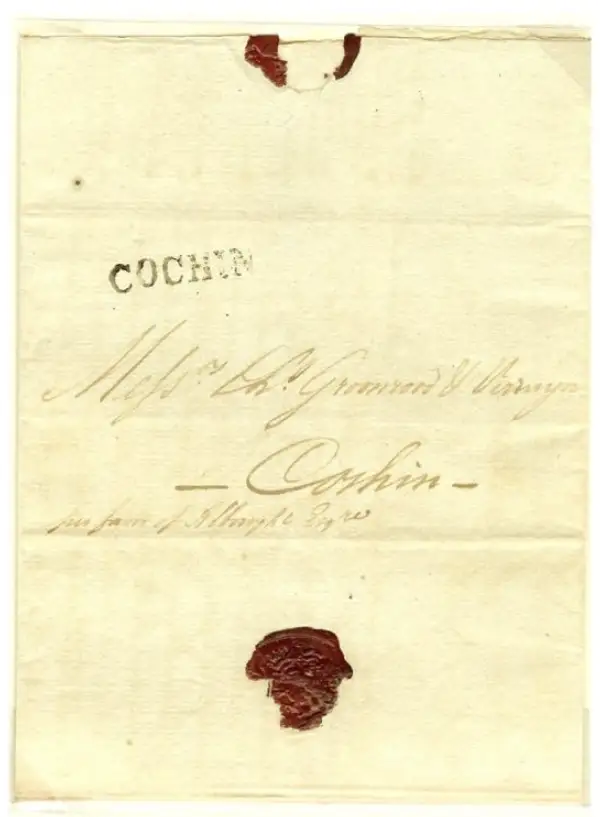 COCHIN
Messrs Chs Greenwood & Verruyn
— Cochin —
per favor of Albrught Esqre